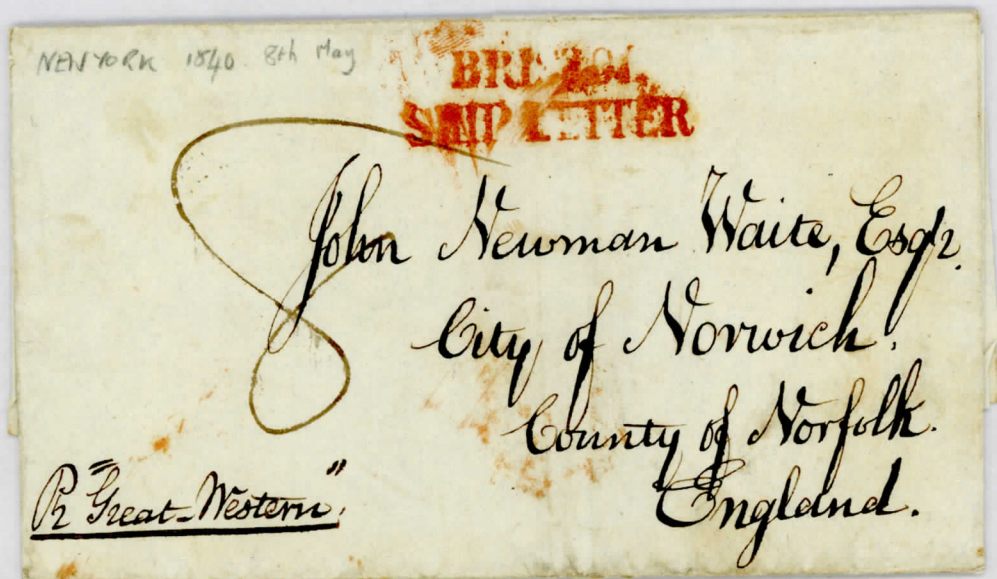 NEW YORK 1840. 8th May
BRISTOL
SHIP LETTER
8
John Newman Waite, Esqr.
City of Norwich.
County of Norfolk.
England.
Pr "Great-Western".